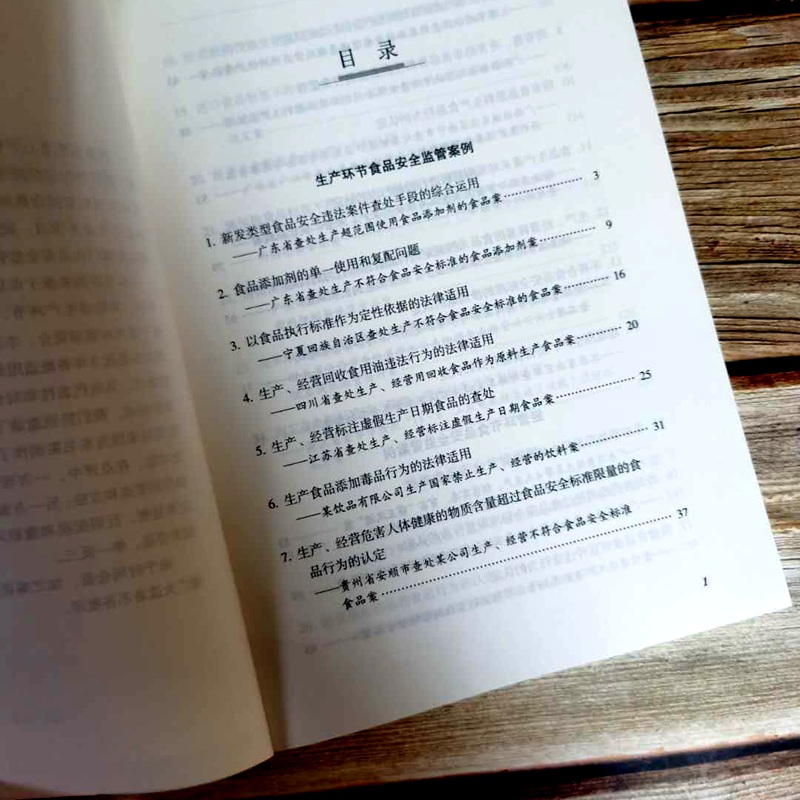 目 录
生产环节食品安全监管案例
1. 新发类型食品安全违法案件查处手段的综合运用
——广东省查处生产超范围使用食品添加剂的食品案 3
2. 食品添加剂的单一使用和复配问题
——广东省查处生产不符合食品安全标准的食品添加剂案 9
3. 以食品执行标准作为定性依据的法律适用
——宁夏回族自治区查处生产不符合食品安全标准的食品案 16
4. 生产、经营回收食用油违法行为的法律适用
——四川省查处生产、经营用回收食品作为原料生产食品案 20
5. 生产、经营标注虚假生产日期食品的查处
——江苏省查处生产、经营标注虚假生产日期食品案 25
6. 生产食品添加毒品行为的法律适用
——某饮品有限公司生产国家禁止生产、经营的饮料案 31
7. 生产、经营危害人体健康的物质含量超过食品安全标准限量的食
品行为的认定
——贵州省安顺市查处某公司生产、经营不符合食品安全标准
食品案 37
1